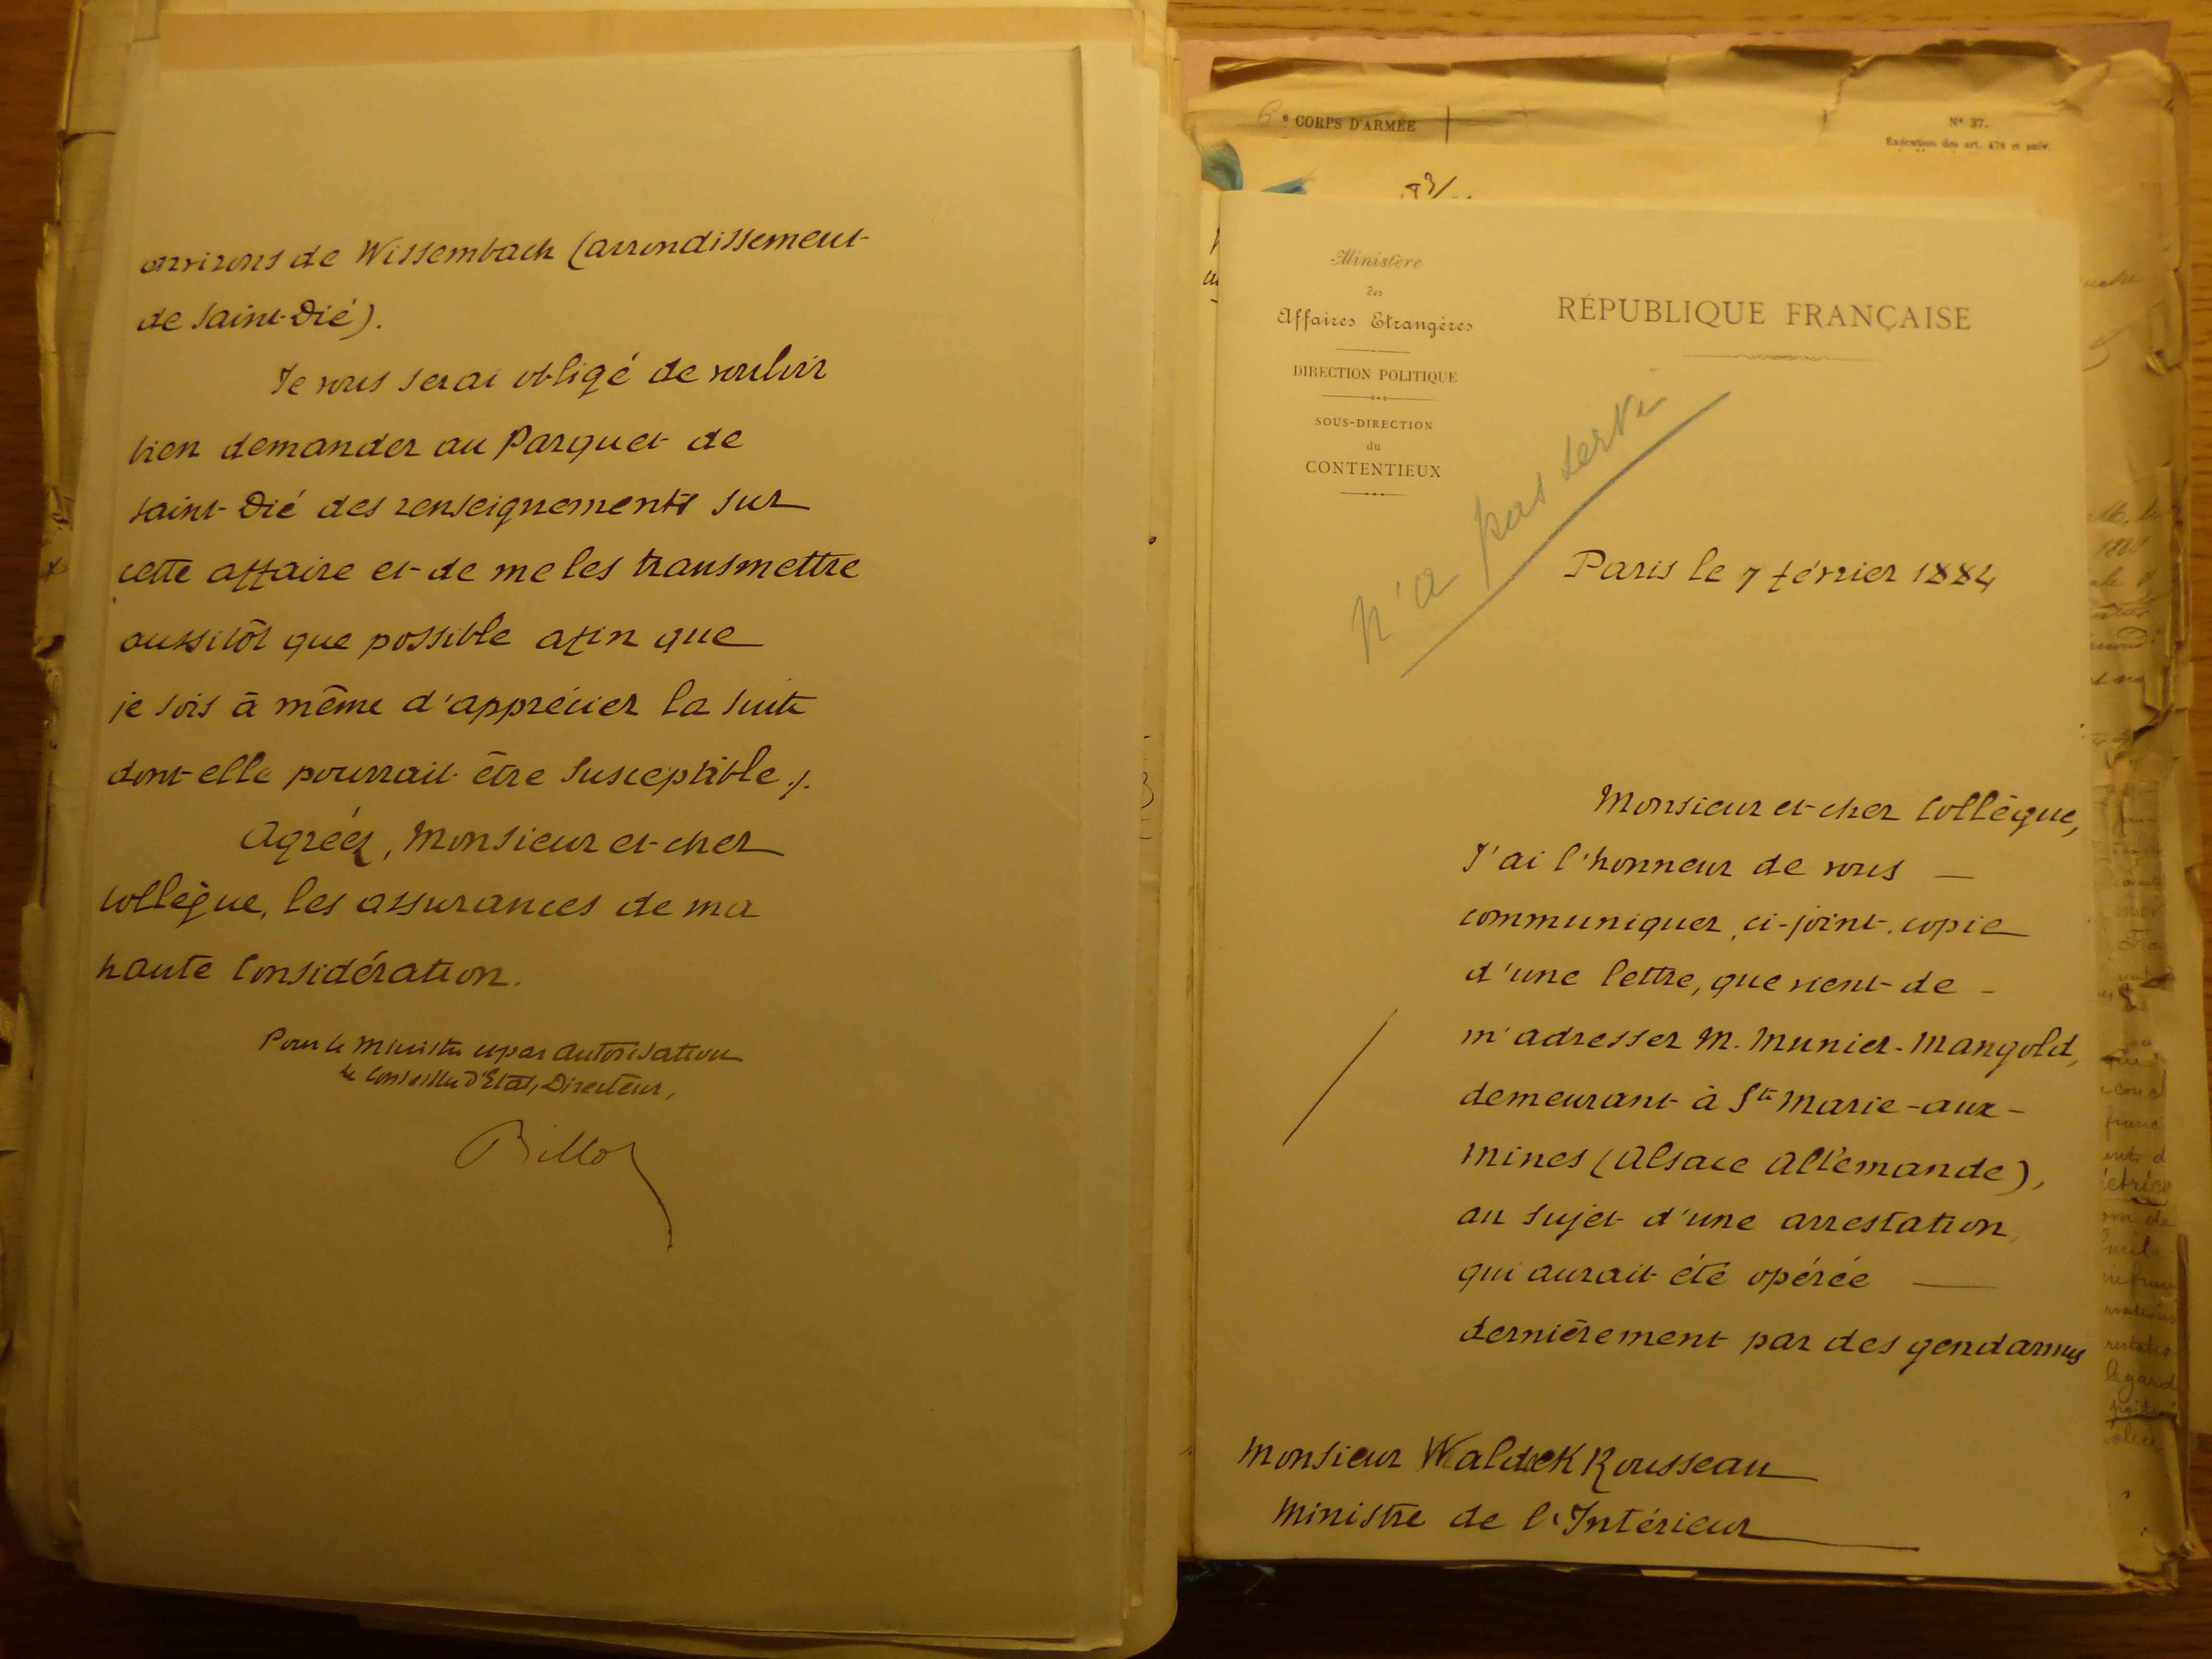 environs de Wissembach (arrondissement
de Saint-Dié).
Je vous serai obligé de vouloir
bien demander au Parquet de
Saint-Dié des renseignements sur
cette affaire et de me les transmettre
aussitôt que possible afin que
je sois à même d'apprécier la suite
dont elle pourrait être susceptible ./.
Agréez, Monsieur et cher
Collègue, les assurances de ma
haute Considération.
Pour le Ministre et par autorisation
Le Conseiller d'Etat, Directeur,
Billot
6e CORPS D'ARMÉE
N° 37.
Exécution des art. 478 et suiv.
Ministère
des
Affaires Etrangères
DIRECTION POLITIQUE
SOUS-DIRECTION
du
CONTENTIEUX
RÉPUBLIQUE FRANÇAISE
n'a pas servi
Paris le 7 février 1884
Monsieur et cher Collègue,
J'ai l'honneur de vous
communiquer, ci-joint, copie
d'une lettre, que vient de
m'adresser M. Munier-Mangold,
demeurant à Ste Marie-aux-
Mines (Alsace Allemande),
au sujet d'une arrestation,
qui aurait été opérée
dernièrement par des gendarmes
Monsieur Waldeck Rousseau
Ministre de l'Intérieur